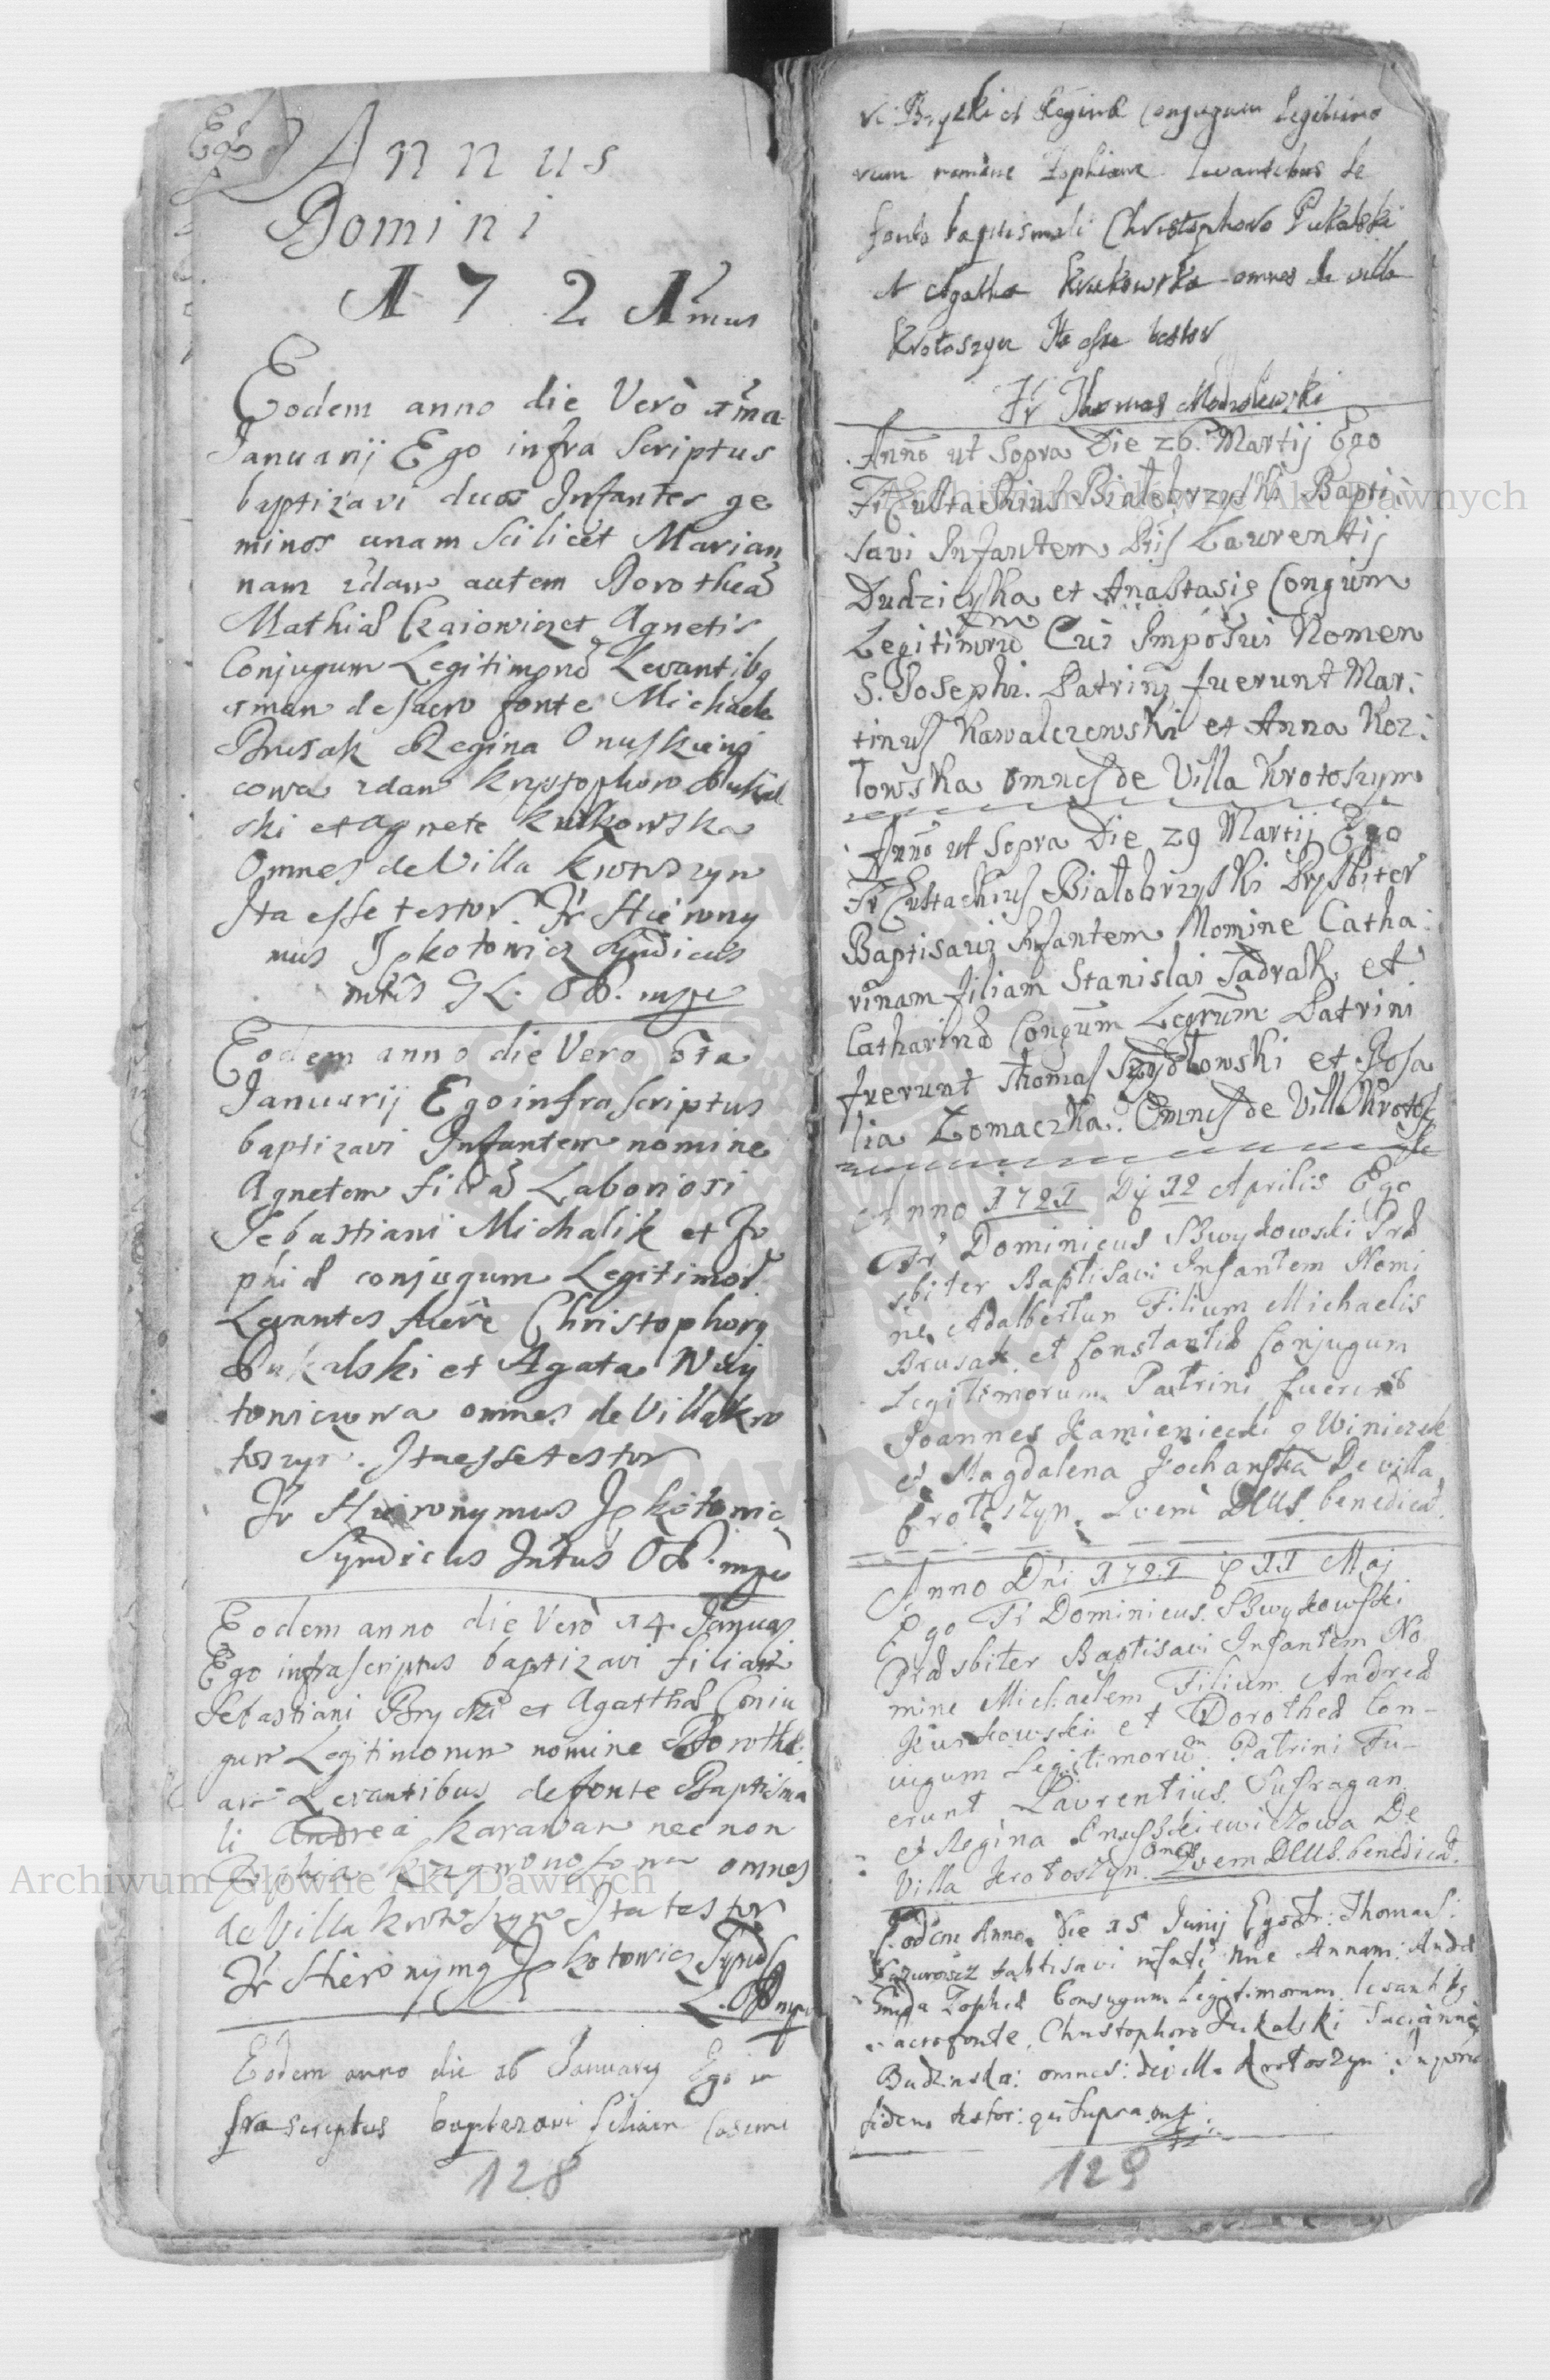 Annus
Domini
1721mus
Eodem anno die Verò 1ma
Januarij Ego infra Scriptus
baptizavi duos Infantes ge
minos unam Scilicet Marian
nam 2dam autem Dorotheã
Mathiæ Czaiowicz et Agnetis
Conjugum Legitimorũ Levantibq
1mam de sacro fonte Michaele
Brusak Regina Onuskiewi
cowa 2dam Krystophoro Pukal
ski et Agnete Kulkowska
Omnes de Villa Krotoszyn
Ita esse testor. Fr Hierony
mus Syndicus
Eodem anno die Vero 5ta
Januarij Ego infra Scriptus
baptizavi Infantem nomine
Agnetem filiã Laboriosi
Sebastiani Michalik et Zo
phiæ conjugum Legitimor
Levantes fuere Christophorq
Pukalski et Agata Woy
towiczowa omnes de Villa Kro
toszyn. Ita esse testor
Fr Hieronymus
Syndicus
Eodem anno die Verò 14 Januarj
Ego infra scriptus baptizavi filiam
Sebastiani Brycki et Agathæ Coniu
gum Legitimorum nomine Dorothe
am Levantibus de fonte Baptisma
li Andrea Karawan nec non
Zophia omnes
de Villa Krotoszyn Ita testor
Fr Hieronymq
Eodem anno die 26 January Ego in
fra scriptus baptezavi filiam Casimi
128
Bryzki et Reginæ Conjugum legitimo
rum nomine Zophiam levantibus de
fonte baptismali Christophoro Pukalski
et Agatha Krukowska omnes de villa
Krotoszyn Ita esse testor
Fr Thomas Modzolewski
Anno ut Sopra Die 26. Martij Ego
Fr Eustachius Białobrzyski Bapti:
savi Infantem Laurentij
Dudzicyka et Anastasiæ Congium
Legitimorũ Cui Imposui Nomen
S. Josephi. Patrinj fuerunt Mar:
tinus Kawalczewski et Anna Koz:
łowska omnes de Villa Krotoszyn
Anno ut Sopra Die 29 Martij Ego
Fr Eustachius Białobrzyski Prysbiter
Baptisavi Infantem Nomine Catha:
rinam filiam Stanislai Jadrak et
Catharinæ Congum Legrum Patrini
fuerunt Thomas Szydłowski et Rosa
lia Łomaczka. Omnes de Villa Krotos
Anno 1721 Dj 12 Aprilis Ego
Fr Dominicus Præ
sbiter Baptisavi Infantem Nomi
ne Adalbertum Filium Michaelis
Brusak et Constantiæ Conjugum
Legitimorum Patrini fuerunt
Joannes Kamieniecki
et Magdalena Kochańska De villa
Krotoszyn. Deus benedicat.
Anno Dni 1721 11 Maj
Ego Fr Dominicus
Præsbiter Baptisavi Infantem No
mine Michaelem Filium Andreæ
Kurkowski et Dorotheæ Con-
iugum Legitimorum Patrini Fu-
erunt Laurentius Sufragan
et Regina De
Villa Krotoszyn omnes Deus benedicat.
Eodem Anno Die 15 Junij Ego Fr: Thomas:
baptisavi nne Annam:
Zophiæ Conjugum legitimorum
sacro fonte Christophoro Pukalski
Budzinska: omnes: de villa Krotoszyn:
fidem testor: qui supra
129
Archiwum Główne Akt Dawnych
Archiwum Główne Akt Dawnych